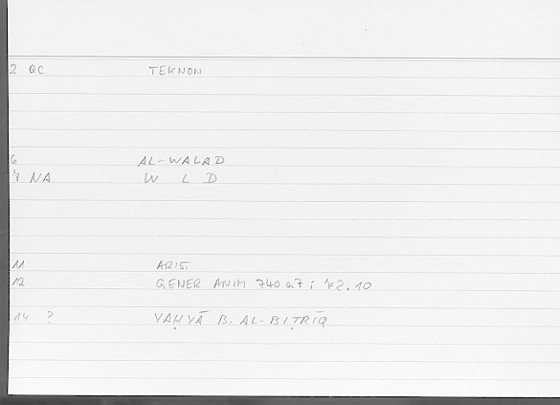 2 QC TEKNON
6 AL-WALAD
7 NA W L D
11 ARIST
12 GENER ANIM 740 a7 ; 72.10
14 ? YAḤYĀ B. AL-BIṬRĪQ